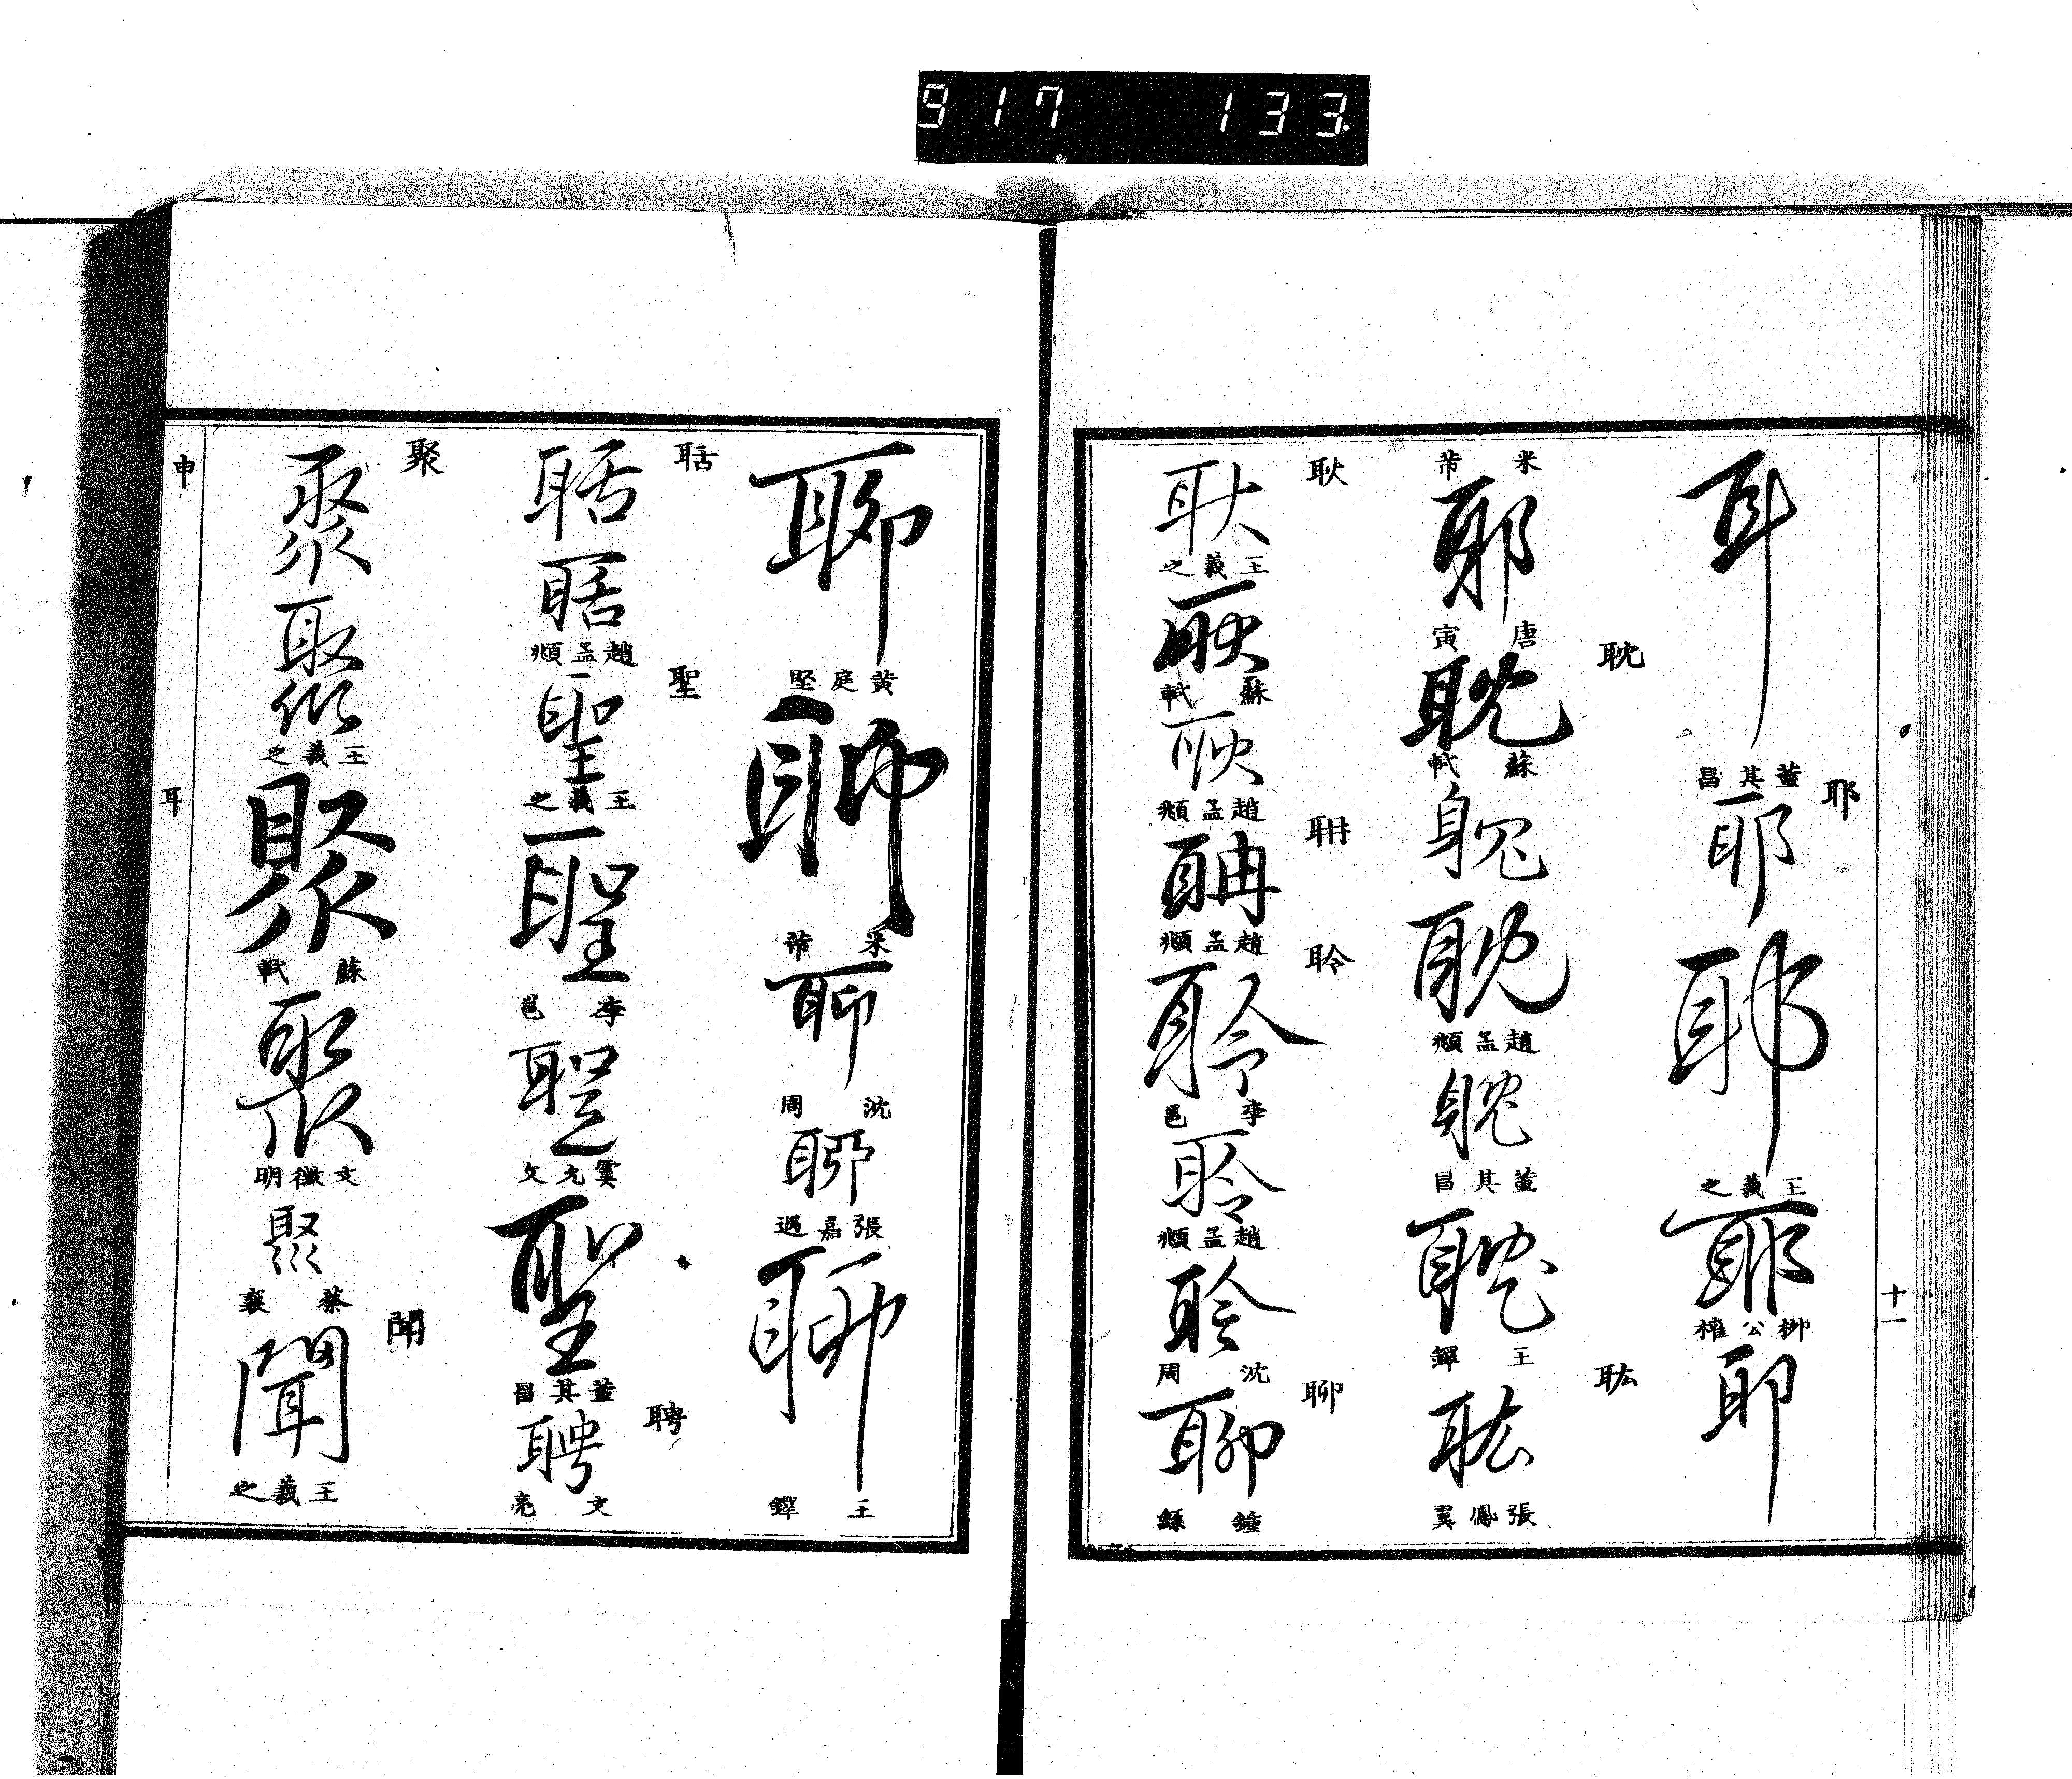 917 133.
十一
耳
董其昌
耶
耶
耶
王羲之
耶
柳公權
耶
米芾
耶
唐寅
耽
耽
蘇軾
耽
耽
趙孟頫
耽
董其昌
耽
王鐸
耾
耾
張鳳翼
耿
耿
王羲之
耿
蘇軾
耿
趙孟頫
耼
聃
趙孟頫
聆
聆
李邕
聆
趙孟頫
聆
沈周
聊
聊
鍾繇
聊
黃庭堅
聊
米芾
聊
沈周
聊
張嘉遇
聊
王鐸
聒
聒
聒
趙孟頫
聖
聖
王羲之
聖
李邕
聖
虞允文
聖
董其昌
聘
聘
文亮
聚
聚
聚
王羲之
聚
蘇軾
聚
文徵明
聚
蔡襄
聞
聞
王羲之
申
耳